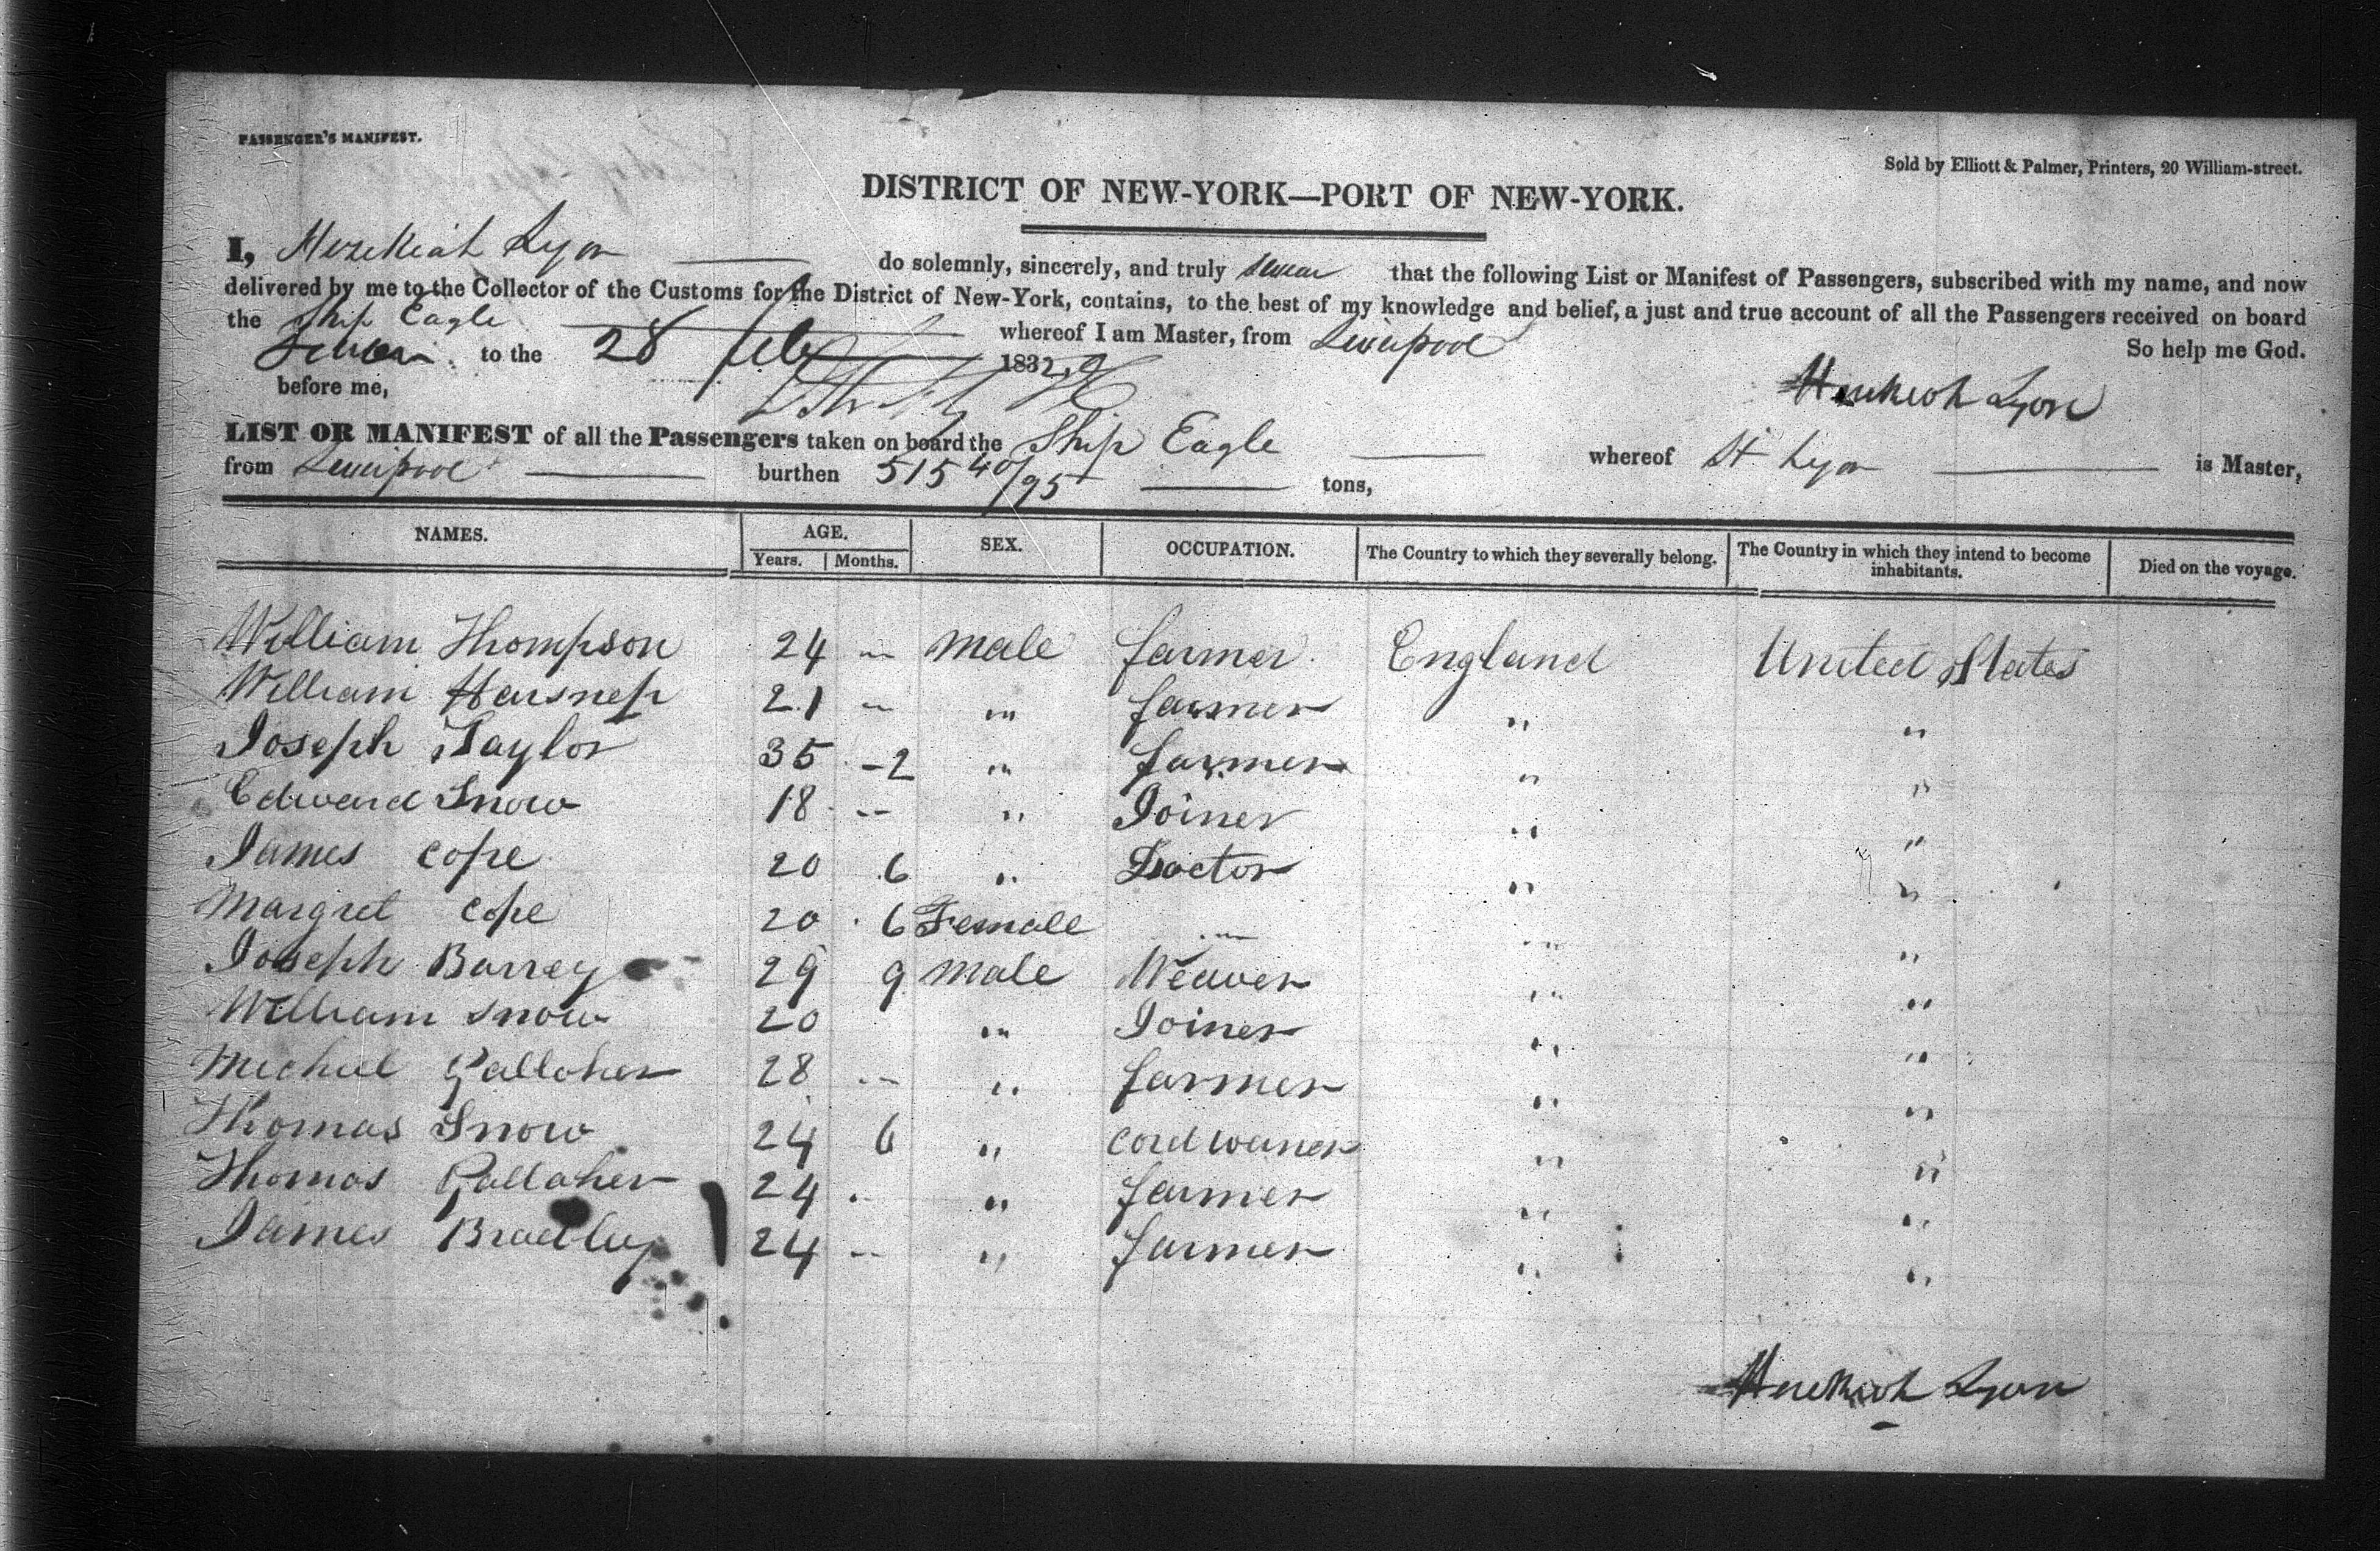 PASSENGER'S MANIFEST.
Sold by Elliott & Palmer, Printers, 20 William-street.
DISTRICT OF NEW-YORK—PORT OF NEW-YORK.
I, Hezekiah Lyon do solemnly, sincerely, and truly swear that the following List or Manifest of Passengers, subscribed with my name, and now
delivered by me to the Collector of the Customs for the District of New-York, contains, to the best of my knowledge and belief, a just and true account of all the Passengers received on board
the Ship Eagle whereof I am Master, from Liverpool
Sworn to the 28 Feb 1832 So help me God.
before me, Hezekiah Lyon
LIST OR MANIFEST of all the Passengers taken on board the Ship Eagle whereof H Lyon is Master,
from Liverpool burthen 515 40/95 tons,
NAMES. AGE. SEX. OCCUPATION. The Country to which they severally belong. The Country in which they intend to become inhabitants. Died on the voyage.
Years. Months.
William Thompson 24 — male farmer England United States
William Harsnep 21 — " farmer " "
Joseph Taylor 35 - 2 " farmer " "
Edward Snow 18 -- " Joiner " "
James Cope 20 6 " Doctor " "
Margret Cope 20 6 Female — " "
Joseph Barrey 29 9 male Weaver " "
William Snow 20 " Joiner " "
Michael Gallaher 28 -- " farmer " "
Thomas Snow 24 6 " cordwainer " "
Thomas Gallaher 24 - " farmer " "
James Bradley 24 -- " farmer " "
Hezekiah Lyon